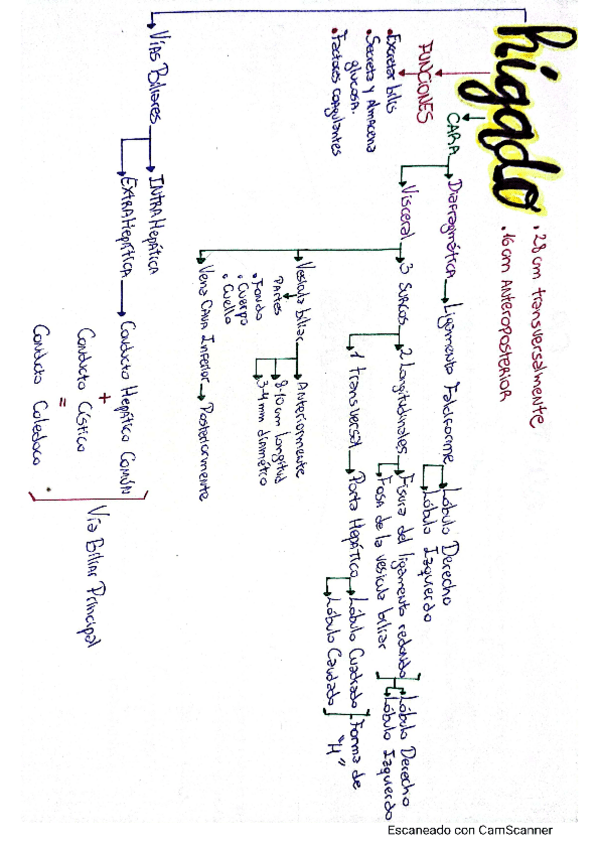 hígado
• 28 cm transversalmente
• 16 cm Anteroposterior
CARA
Diafragmática
Ligamento Falciforme
Lóbulo Derecho
Lóbulo Izquierdo
Visceral
3 surcos
2 Longitudinales
Fisura del ligamento redondo
Fosa de la vesícula biliar
Lóbulo Derecho
Lóbulo Izquierdo
1 transversal
Porta Hepática
Lóbulo Cuadrado
Lóbulo Caudado
Forma de
"H"
Vesícula biliar
Anteriormente
8-10 cm longitud
3-4 mm diámetro
PARTES
• Fondo
• Cuerpo
• Cuello
Vena CAVA Inferior
Posteriormente
FUNCIONES
• Excretar bilis
• Secreta y Almacena
glucosa.
• Factores coagulantes
Vías Biliares
INTRAHepática
EXTRAHepática
Conducto Hepático Común
+
Conducto Cístico
=
Conducto Coledoco.
Vía Biliar Principal
Escaneado con CamScanner